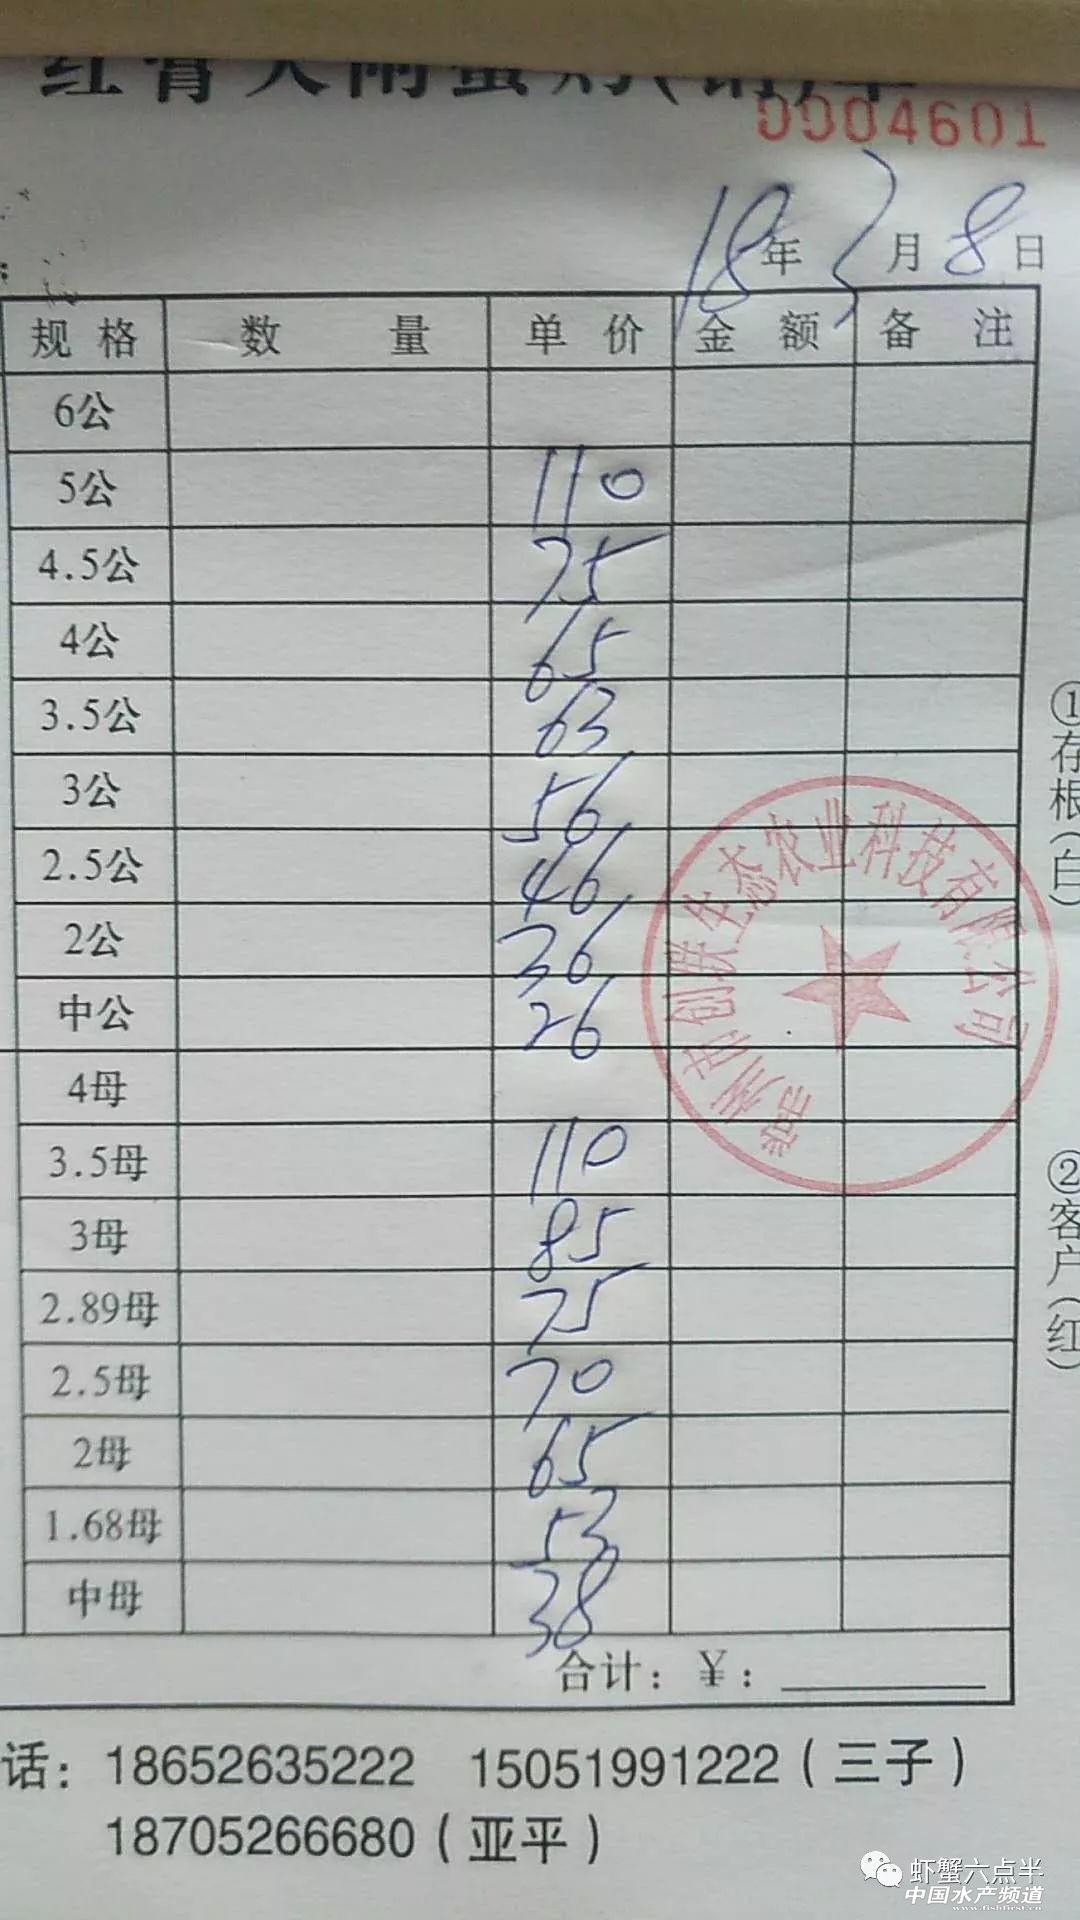 红膏大闸蟹购(销)单
0004601
18年3月8日
规格 数量 单价 金额 备注
6公
5公 110
4.5公 75
4公 65
3.5公 63
3公 56
2.5公 46
2公 36
中公 26
4母
3.5母 110
3母 85
2.89母 75
2.5母 70
2母 65
1.68母 53
中母 38
合计：￥：
话：18652635222 15051991222（三子）
18705266680（亚平）
①存根(白)
②客户(红)
常州市创联生态农业科技有限公司
虾蟹六点半
中国水产频道
www.fishfirst.cn